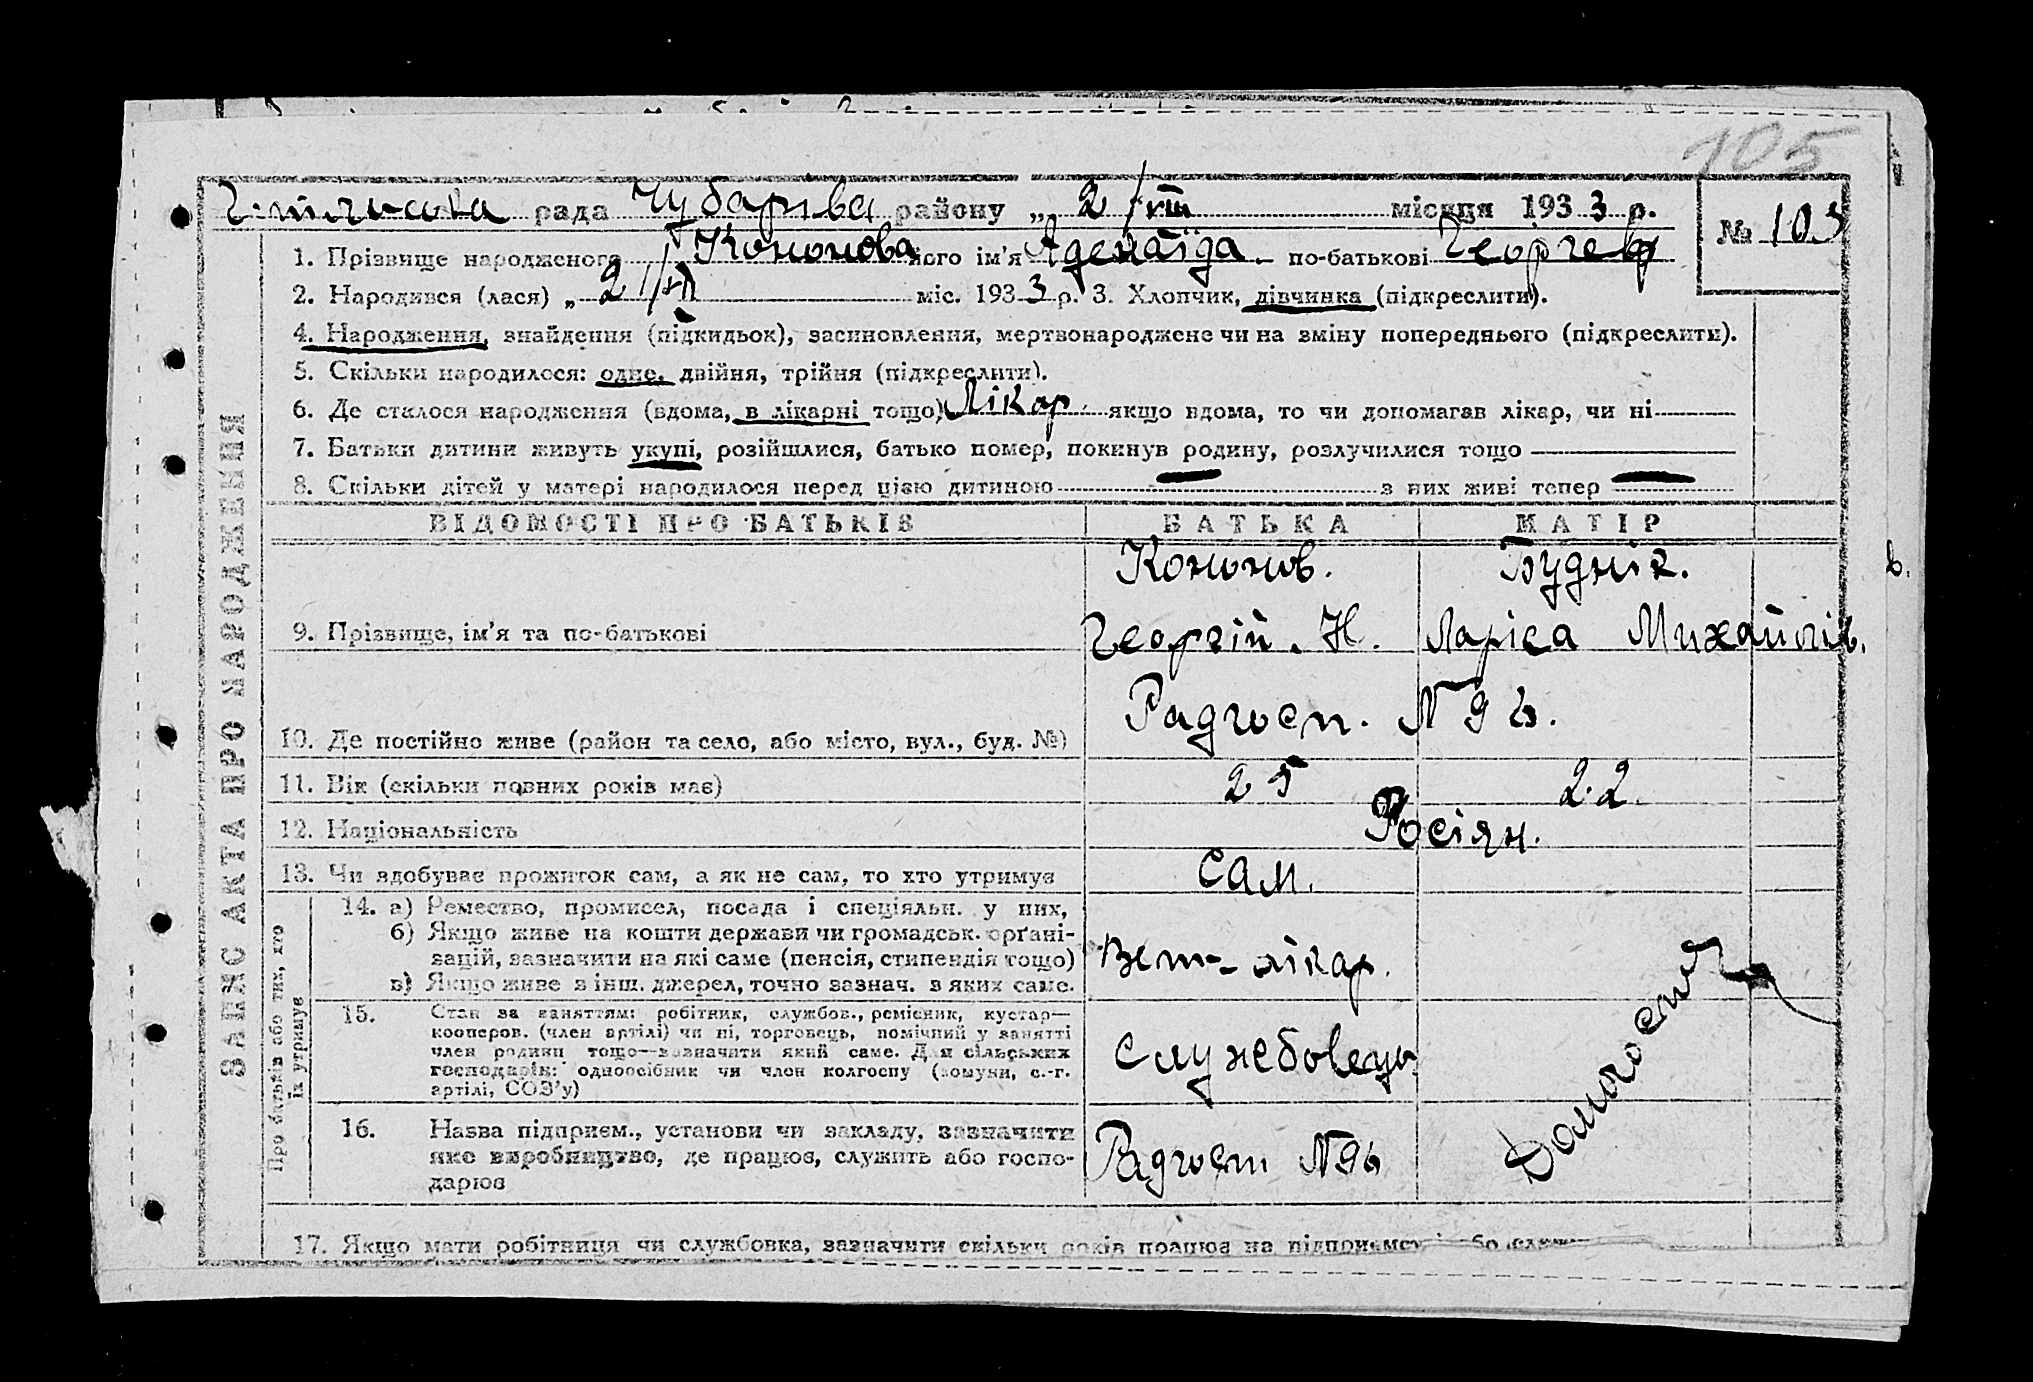 105
рада Чубарівс району „ 2 / VIII місяця 1933 р.
№ 103
1. Прізвище народженого Кононова його ім'я Аделаїда по-батькові Георгев
2. Народився (лася) „ 2 / міс. 1933 р. 3. Хлопчик, дівчинка (підкреслити).
4. Народження, знайдення (підкидьок), засиновлення, мертвонароджене чи на зміну попереднього (підкреслити).
5. Скільки народилося: одне, двійня, трійня (підкреслити).
6. Де сталося народження (вдома, в лікарні тощо) Лікар. якщо вдома, то чи допомагав лікар, чи ні
7. Батьки дитини живуть укупі, розійшлися, батько помер, покинув родину, розлучилися тощо
8. Скільки дітей у матері народилося перед цією дитиною — з них живі тепер —
ЗАПИС АКТА ПРО НАРОДЖЕННЯ
ВІДОМОСТІ ПРО БАТЬКІВ БАТЬКА МАТІР
Кононов. Буднік.
9. Прізвище, ім'я та по-батькові Георгій. Н. Ларіса Михайлів.
10. Де постійно живе (район та село, або місто, вул., буд. №) Радгосп. N 9
11. Вік (скільки повних років має) 25 22.
12. Національність Росіян.
13. Чи здобуває прожиток сам, а як не сам, то хто утримує сам.
Про батьків або тих, хто їх утримує
14. а) Ремество, промисел, посада і спеціяльн. у них,
б) Якщо живе на кошти держави чи громадськ. орґані-
зацій, зазначити на які саме (пенсія, стипендія тощо)
в) Якщо живе з інш. джерел, точно зазнач. з яких саме.
Вет-лікар.
15. Стан за заняттям: робітник, службов., ремісник, кустар—
кооперов. (член артілі) чи ні, торговець, помічний у занятті
член родини тощо—зазначити який саме. Для сільських
господарів: одноосібник чи член колгоспу (комуни, с.-г.
артілі, СОЗ'у)
Службовець
16. Назва підприєм., установи чи закладу, зазначити
яке виробництво, де працює, служить або госпо-
дарює
Радгосп
17. Якщо мати робітниця чи службовка, зазначити скільки років працює на